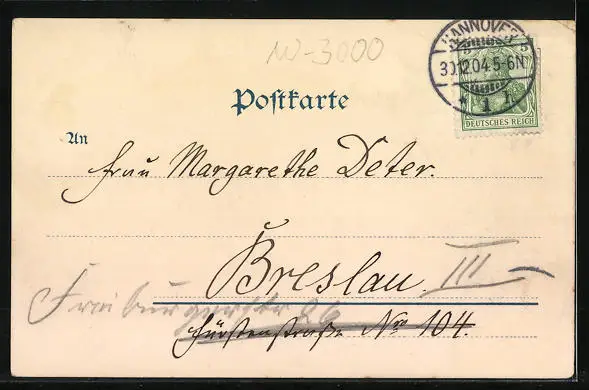 W-3000
HANNOVER
5 5
30.12.04.5-6N
* 1 r
DEUTSCHES REICH
Postkarte
An
Frau Margarethe Deter.
Breslau. III
Freiburgerstr 26
Fürstenstraße No 104.